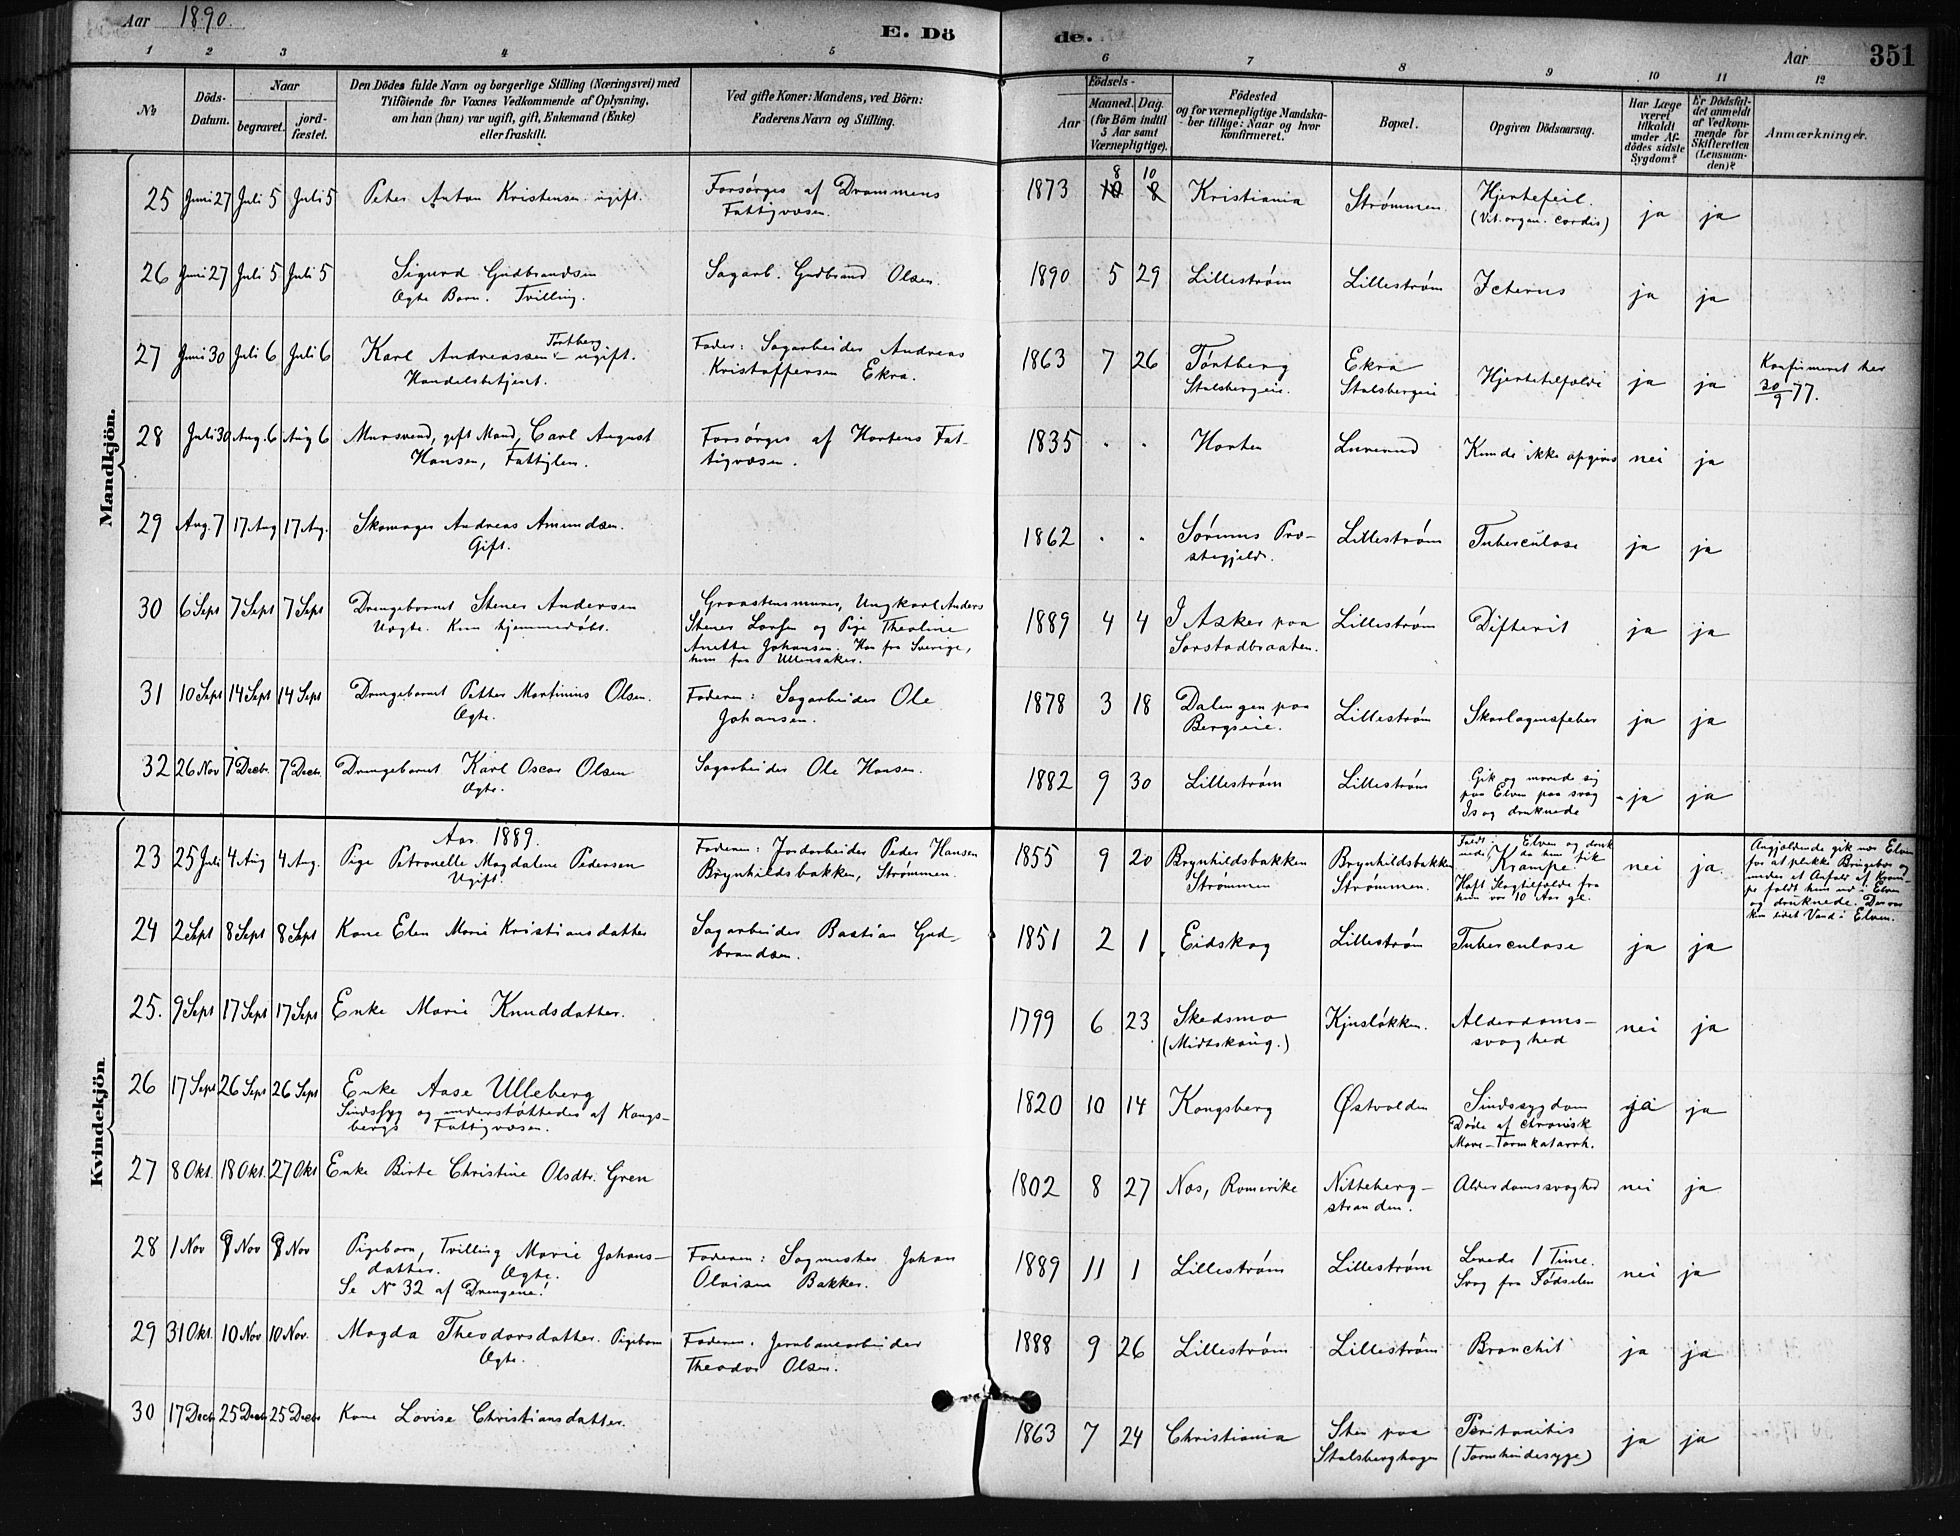 Aar 1890.
E. Döde.
Aar
351
1 2 3 4 5 6 7 8 9 10 11 12
№
Döds-Datum.
Naar
begravet.
jordfæstet.
Den Dödes fulde Navn og borgerlige Stilling (Næringsvei) med
Tilföiende for Voxnes Vedkommende af Oplysning,
om han (hun) var ugift, gift, Enkemand (Enke)
eller fraskilt.
Ved gifte Koner: Mandens, ved Börn:
Faderens Navn og Stilling.
Födsels-
Aar
Maaned. Dag.
(for Börn indtil
5 Aar samt
Værnepligtige).
Födested
og for værnepligtige Mandskaber tillige: Naar og hvor
konfirmeret.
Bopæl.
Opgiven Dödsaarsag.
Har Læge
været
tilkaldt
under Afdödes sidste
Sygdom?
Er Dödsfaldet anmeldt
af Vedkommende for
Skifteretten
(Lensmanden)?
Anmærkninger.
Mandkjön.
25 Juni 27 Juli 5 Juli 5 Peter Anton Kristensen ugift. Forsørges af Drammens Fattigvæsen. 1873 8 10 Kristiania Strømmen Hjertefeil. (Vit. organ. cordis) ja ja
26 Juni 27 Juli 5 Juli 5 Sigurd Gudbrandsen Ægte Barn. Tvilling. Sagarb. Gudbrand Olsen. 1890 5 29 Lillestrøm Lillestrøm Icterus ja ja
27 Juni 30 Juli 6 Juli 6 Karl Andreassen Tortberg ugift. Handelsbetjent. Fader: Sagarbeider Andreas Kristoffersen Ekra. 1863 7 26 Tortberg Stalsbergeie. Ekra Stalsbergeie Hjertetilfælde ja ja Konfirmeret her 30/9 77.
28 Juli 30 Aug. 6 Aug 6 Mursvend, gift Mand, Carl August Hansen, Fattiglem. Forsørges af Hortens Fattigvæsen. 1835 . . Horten Lurerud Kunde ikke opgives nei ja
29 Aug. 7 17 Aug 17 Aug. Skomager Andreas Amundsen. Gift. 1862 . . Sørums Prostegjeld. Lillestrøm Tuberculose ja ja
30 6 Sept 7 Sept 7 Sept Drengebarnet Stener Andersen Uægte. Kun hjemmedøbt. Graastensmurer, Ungkarl Anders Stener Larsen og Pige Theoline Anette Johansen. Han fra Sverige, hun fra Ullensaker. 1889 4 4 I Asker paa Sorstadbraaten. Lillestrøm Difterit ja ja
31 10 Sept 14 Sept 14 Sept Drengebarnet Petter Martinius Olsen. Ægte. Faderen: Sagarbeider Ole Johansen. 1878 3 18 Dalengen paa Bergseie. Lillestrøm Skarlagensfeber ja ja
32 26 Nov 7 Decbr. 7 Decbr. Drengebarnet Karl Oscar Olsen Ægte. Sagarbeider Ole Hansen. 1882 9 30 Lillestrøm Lillestrøm Gik og morede sig paa Elven paa svag Is og druknede ja ja
Kvindekjön
Aar 1889.
23 25 Juli 4 Aug 4 Aug. Pige Petronelle Magdalene Pedersen Ugift. Faderen: Jordarbeider Peder Hansen Brynhildsbakken, Strømmen. 1855 9 20 Brynhildsbakken Strømmen Brynhildsbakken Strømmen. Faldt i Elven og druknede, da hun fik Krampe. Haft Slagtilfælde fra hun var 10 Aar gl. nei ja Angjældende gik nær Elven for at plukke Bringebær og under et Anfald af Krampe faldt hun ud i Elven og druknede. Der var kun lidet Vand i Elven.
24 2 Sept 8 Sept 8 Sept Kone Elen Marie Kristiansdatter Sagarbeider Bastian Gudbrandsen. 1851 2 1 Eidskog Lillestrøm Tuberculose ja ja
25. 9 Sept 17 Sept 17 Sept Enke Marie Knudsdatter. 1799 6 23 Skedsmo (Midtskoug.) Kjusløkken. Alderdomssvaghed nei ja
26 17 Sept 26 Sept 26 Sept Enke Aase Ulleberg Sindssyg og understøttedes af Kongsbergs Fattigvæsen. 1820 10 14 Kongsberg Østvolden Sindssygdom Døde af chronisk Mave-Tarmkatarrh. ja ja
27 8 Okt. 18 Okt. 27 Okt Enke Birte Christine Olsdtr. Gren 1802 8 27 Nes, Romerike Nitteberg-stranden. Alderdomssvaghed nei ja
28 1 Nov 8 Nov 8 Nov Pigebarn, Tvilling Marie Johansdatter. Ægte. Se No 32 af Drengene! Faderen: Sagmester Johan Olaisen Bakker. 1889 11 1 Lillestrøm Lillestrøm Levede 1 Time. Svag fra Fødselen nei ja
29 31 Okt. 10 Nov 10 Nov. Magda Theodorsdatter. Pigebarn Ægte. Faderen: Jernbanearbeider Theodor Olsen. 1888 9 26 Lillestrøm Lillestrøm Bronchit ja ja
30 17 Decbr. 25 Decbr. 25 Decbr Kone Lovise Christiansdatter. 1863 7 24 Christiania Sten paa Stalsberghagen Peritonitis (Tarmhindesyge) ja ja